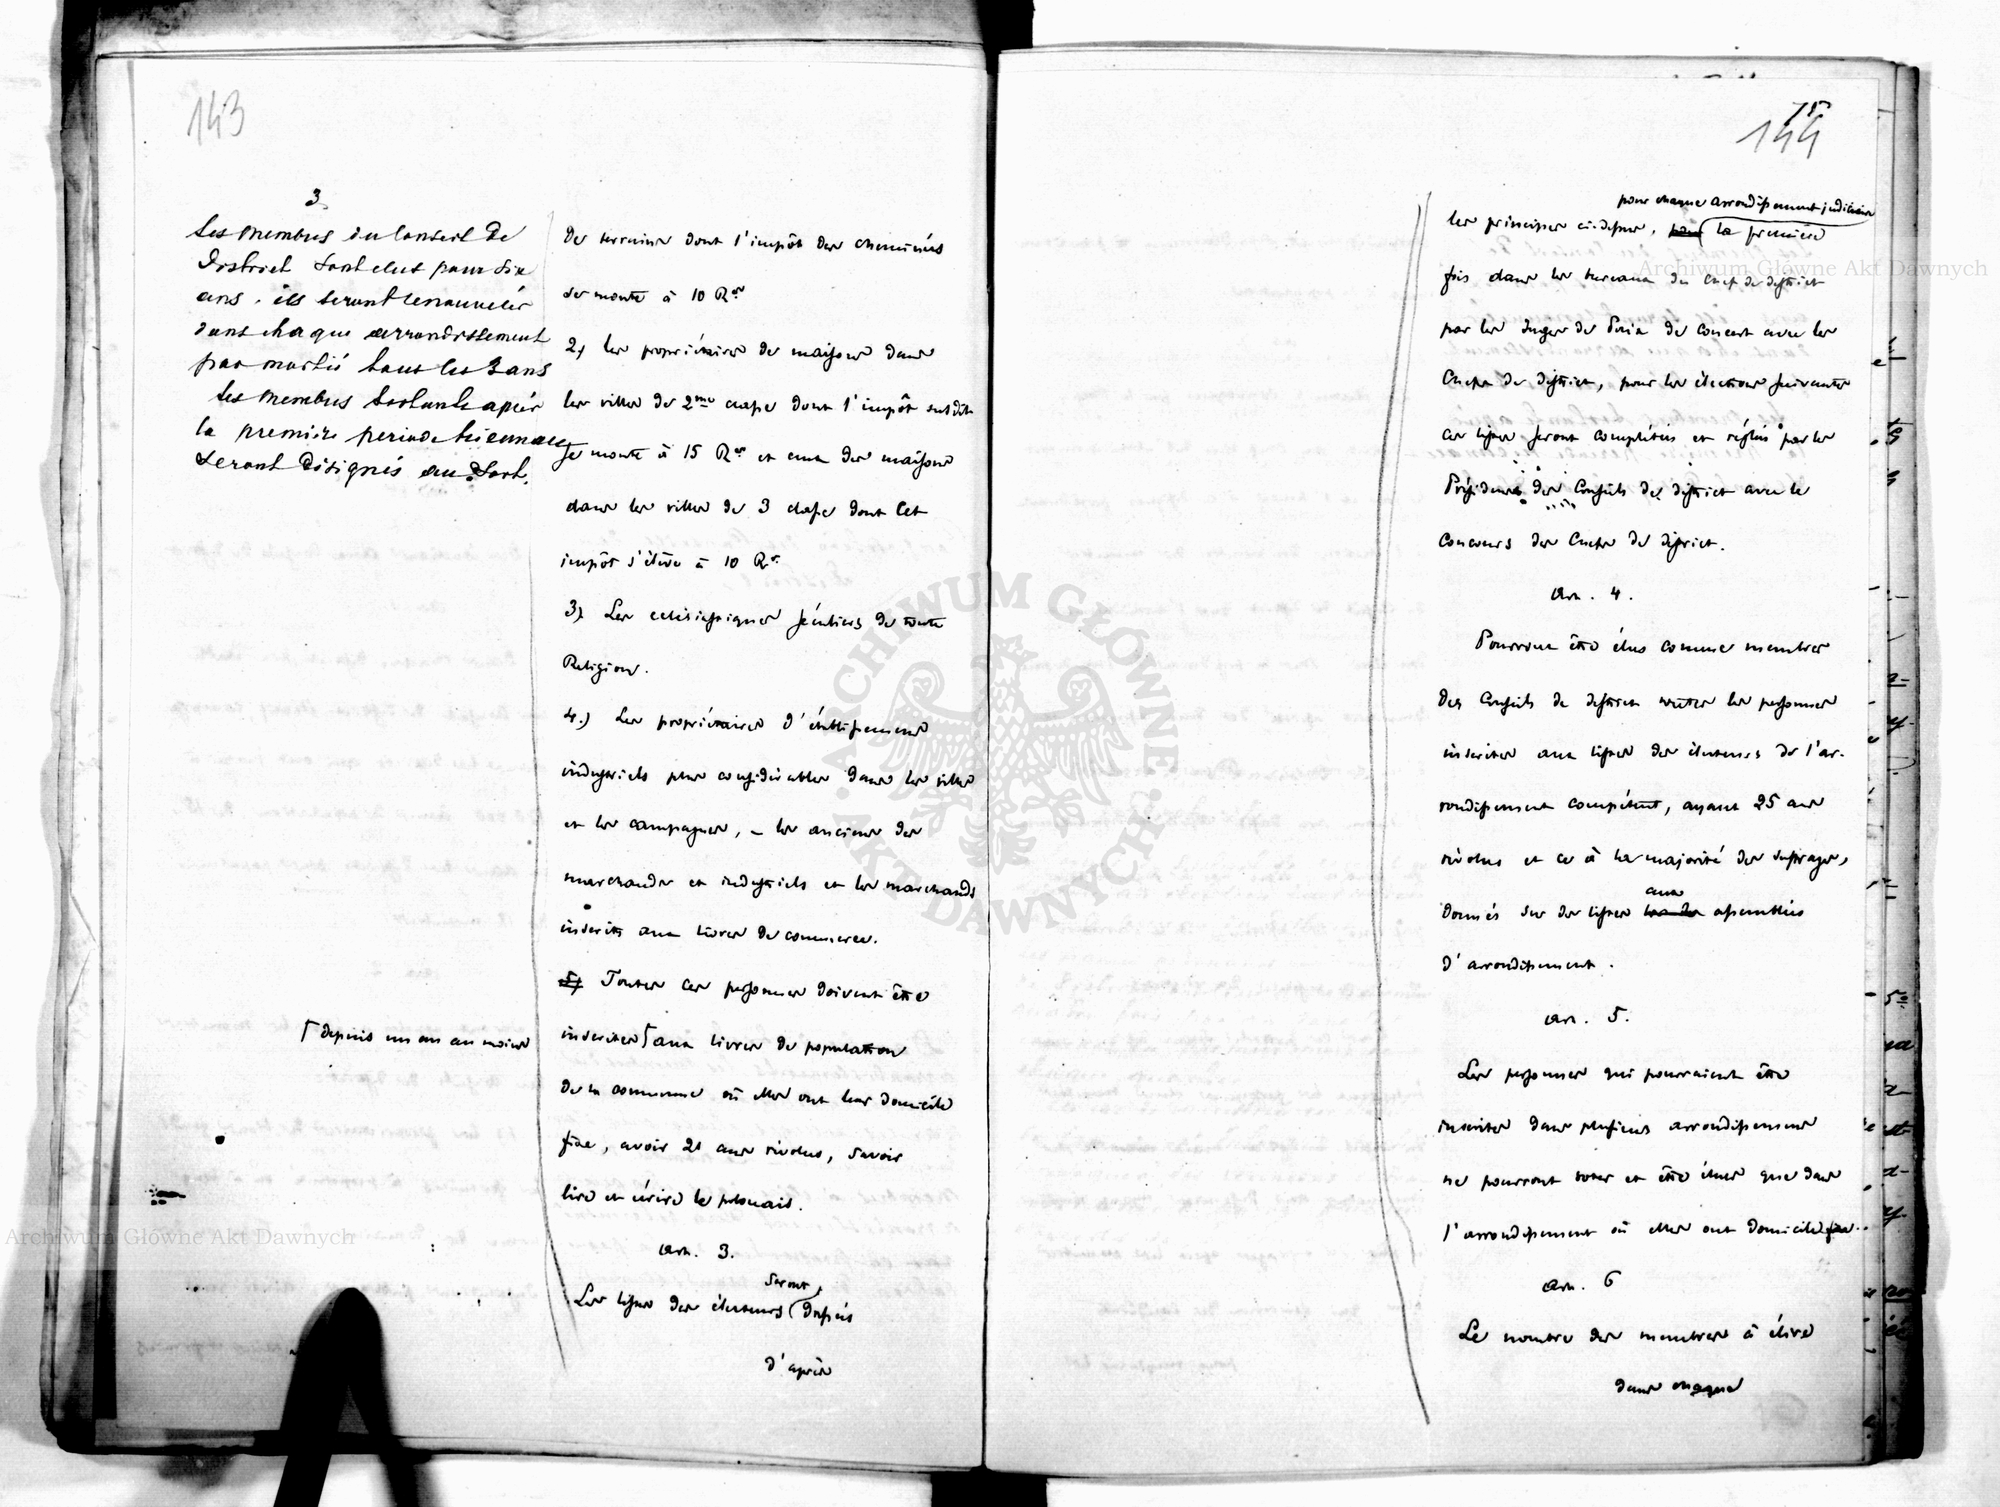 143
3
Les membres du Conseil de
District sont elus pour six
ans. ils seront renouvelés
dans chaque arrondissement
par moitié tous les 3 ans
Les membres sortants après
la première periode triennale
seront désignés au sort.
de terrains dont l'impôt des cheminées
se monte à 10 Rs
2) les propriétaires de maisons dans
les villes de 2me classe dont l'impôt susdit
se monte à 15 Rs et ceux des maisons
dans les villes de 3 classe dont cet
impôt s'élève à 10 Rs.
3) Les ecclésiastiques séculiers de toute
Religion.
4.) Les propriétaires d'établissemens
industriels plus considérables dans les villes
et les campagnes, – les anciens des
marchands et industriels et les marchands
inscrits aux livres de commerce.
5) Toutes ces personnes doivent être
inscrites aux livres de population
⌈ depuis un an au moins
de la commune où elles ont leur domicile
fixe, avoir 21 ans révolus, savoir
lire et écrire le polonais.
Art. 3.
Les listes des électeurs seront
d'après
75
144
pour chaque arrondissement judiciaire
les principes ci-dessus, pour la première
fois dans les bureaux du Chef de district
par les Juges de Paix de concert avec les
Chefs de district, pour les élections suivantes
ces listes seront complétées et réglées par les
Présidents des Conseils de district avec le
concours des Chefs de district.
Art. 4.
Pourront être élus comme membres
des Conseils de district toutes les personnes
inscrites aux listes des électeurs de l'ar-
rondissement compétent, ayant 25 ans
révolus et ce à la majorité des suffrages,
donnés sur des listes aux assemblées
d'arrondissement.
Art. 5.
Les personnes qui pourraient être
inscrites dans plusieurs arrondissemens
ne pourront voter et être élues que dans
l'arrondissement où elles ont domicile fixe.
Art. 6
Le nombre des membres à élire
dans chaque
Archiwum Główne Akt Dawnych
Archiwum Główne Akt Dawnych
ARCHIWUM GŁÓWNE AKT DAWNYCH